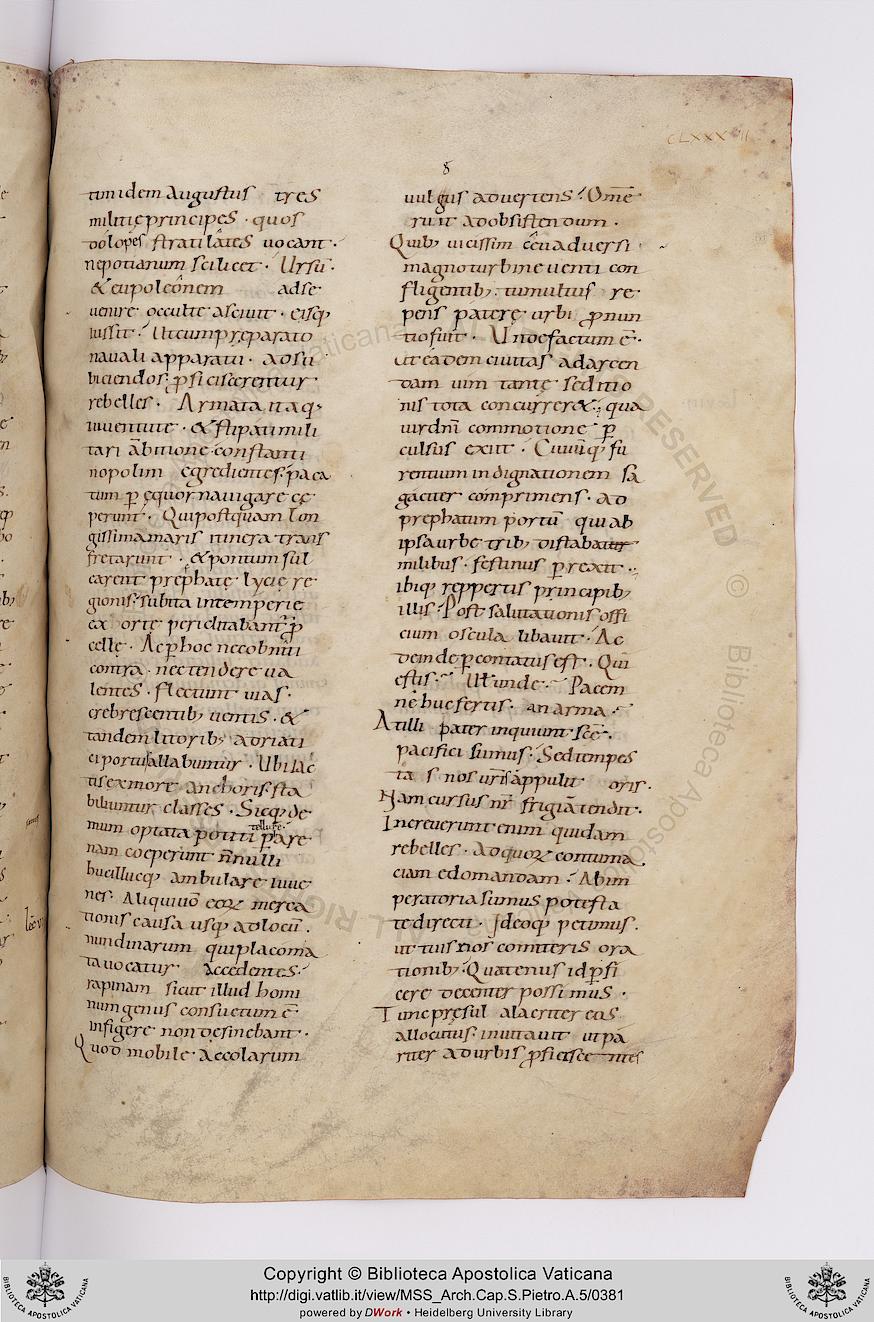 CLXXXVII
8
tim idem Augustus tres
militię principes · quos
dolopes stratilates uocant ·
nepotianum scilicet · Ursū ·
& eupoleonem adse
uenire occulte asciuit · eisq;
iussit · Ut cum preparato
nauali apparatu · adsu
biciendos ꝓficiscerentur
rebelles · Armata itaq;
iuuentute · & stipati mili
tari ambitione constanti
nopolim egredientes · paca
tum ꝑ ęquor nauigare cę
perunt · Qui postquam lon
gissima maris itinera trans
fretarunt · & pontum sul
carent prephatę lycię re
gionis · subita intemperie
ex orte periclitabant ꝓ
cellę · Ac ꝑhoc nec obniti
contra · nec tendere ua
lentes · flectunt uias ·
crebrescentib; uentis · &
tandem litorib; adriati
ci portus allabuntur · Ubi iac
tis ex more anchoris sta
biliuntur classes · Sicq; de
mum optata potiti tellure ꝑare
nam coeperunt nonnulli
bucilluęq; ambulare iuue
nes · Aliquiuō eoꝝ merca
tionis causa usq; ad locū ·
nundinarum qui placoma
ta uocatur accedentes ·
rapinam sicut illud homi
num genus consuetum ē ·
infigere non desinebant ·
Quod mobile accolarum
uulgus aduertens · Ome
ruit ad obsistendum ·
Quib; uicissim ceu aduersi
magno turbine uenti con
fligentib; tumultus re
pens paterę urbi ꝓnun
tio fuit · Unde factum ē ·
ut eadem ciuitas ad arcen
dam uim tantę seditio
nis tota concurrer& · qua
uir dnī commotione ꝑ
culsus exiit · Ciuiūq; fu
rentium indignationem sa
gaciter comprimens · ad
prephatum portū qui ab
ipsa urbe trib; distabatur
milibus · festinus ꝑrexit ·
ibiq; reppertis principib;
illis · Post salutationis offi
cium oscula libauit · Ac
deinde ꝑcontatus est · Qui
estis · Uł unde · Pacem
ne huc fertis · an arma ·
At illi pater inquiunt scē ·
pacifici sumus · Sed tempes
tas nos uris appulit oris ·
Nam cursus nr̄ frigiā tendit ·
Increuerunt enim quidam
rebelles · ad quoꝝ contuma
ciam edomandam · Ab im
peratoria sumus potesta
te directi · Ideoq; petimus ·
ut tuis nos comiteris ora
tionib; Quatenus id ꝑfi
cere decenter possimus ·
Tunc pręsul alacriter eos
allocutus · inuitauit ut pa
riter ad urbis ꝓficiscentes
Copyright © Biblioteca Apostolica Vaticana
http://digi.vatlib.it/view/MSS_Arch.Cap.S.Pietro.A.5/0381
powered by DWork • Heidelberg University Library